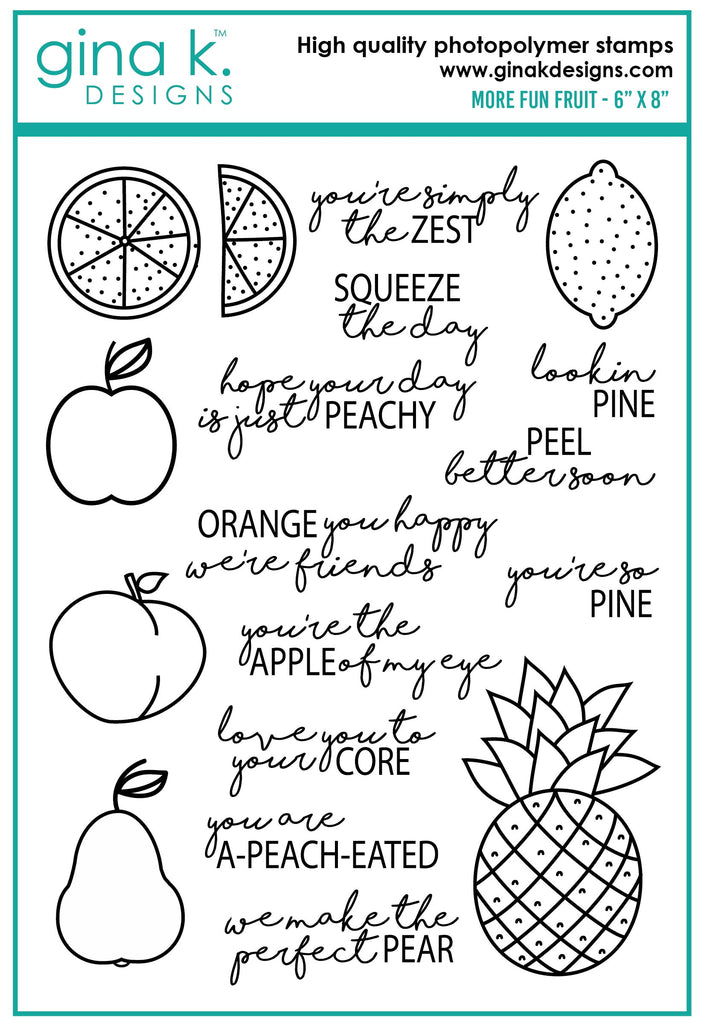 gina k.™
DESIGNS
High quality photopolymer stamps
www.ginakdesigns.com
MORE FUN FRUIT - 6” X 8”
you're simply
the ZEST
SQUEEZE
the day
hope your day
is just PEACHY
lookin
PINE
PEEL
better soon
ORANGE you happy
we're friends
you're so
PINE
you're the
APPLE of my eye
love you to
your CORE
you are
A-PEACH-EATED
we make the
perfect PEAR